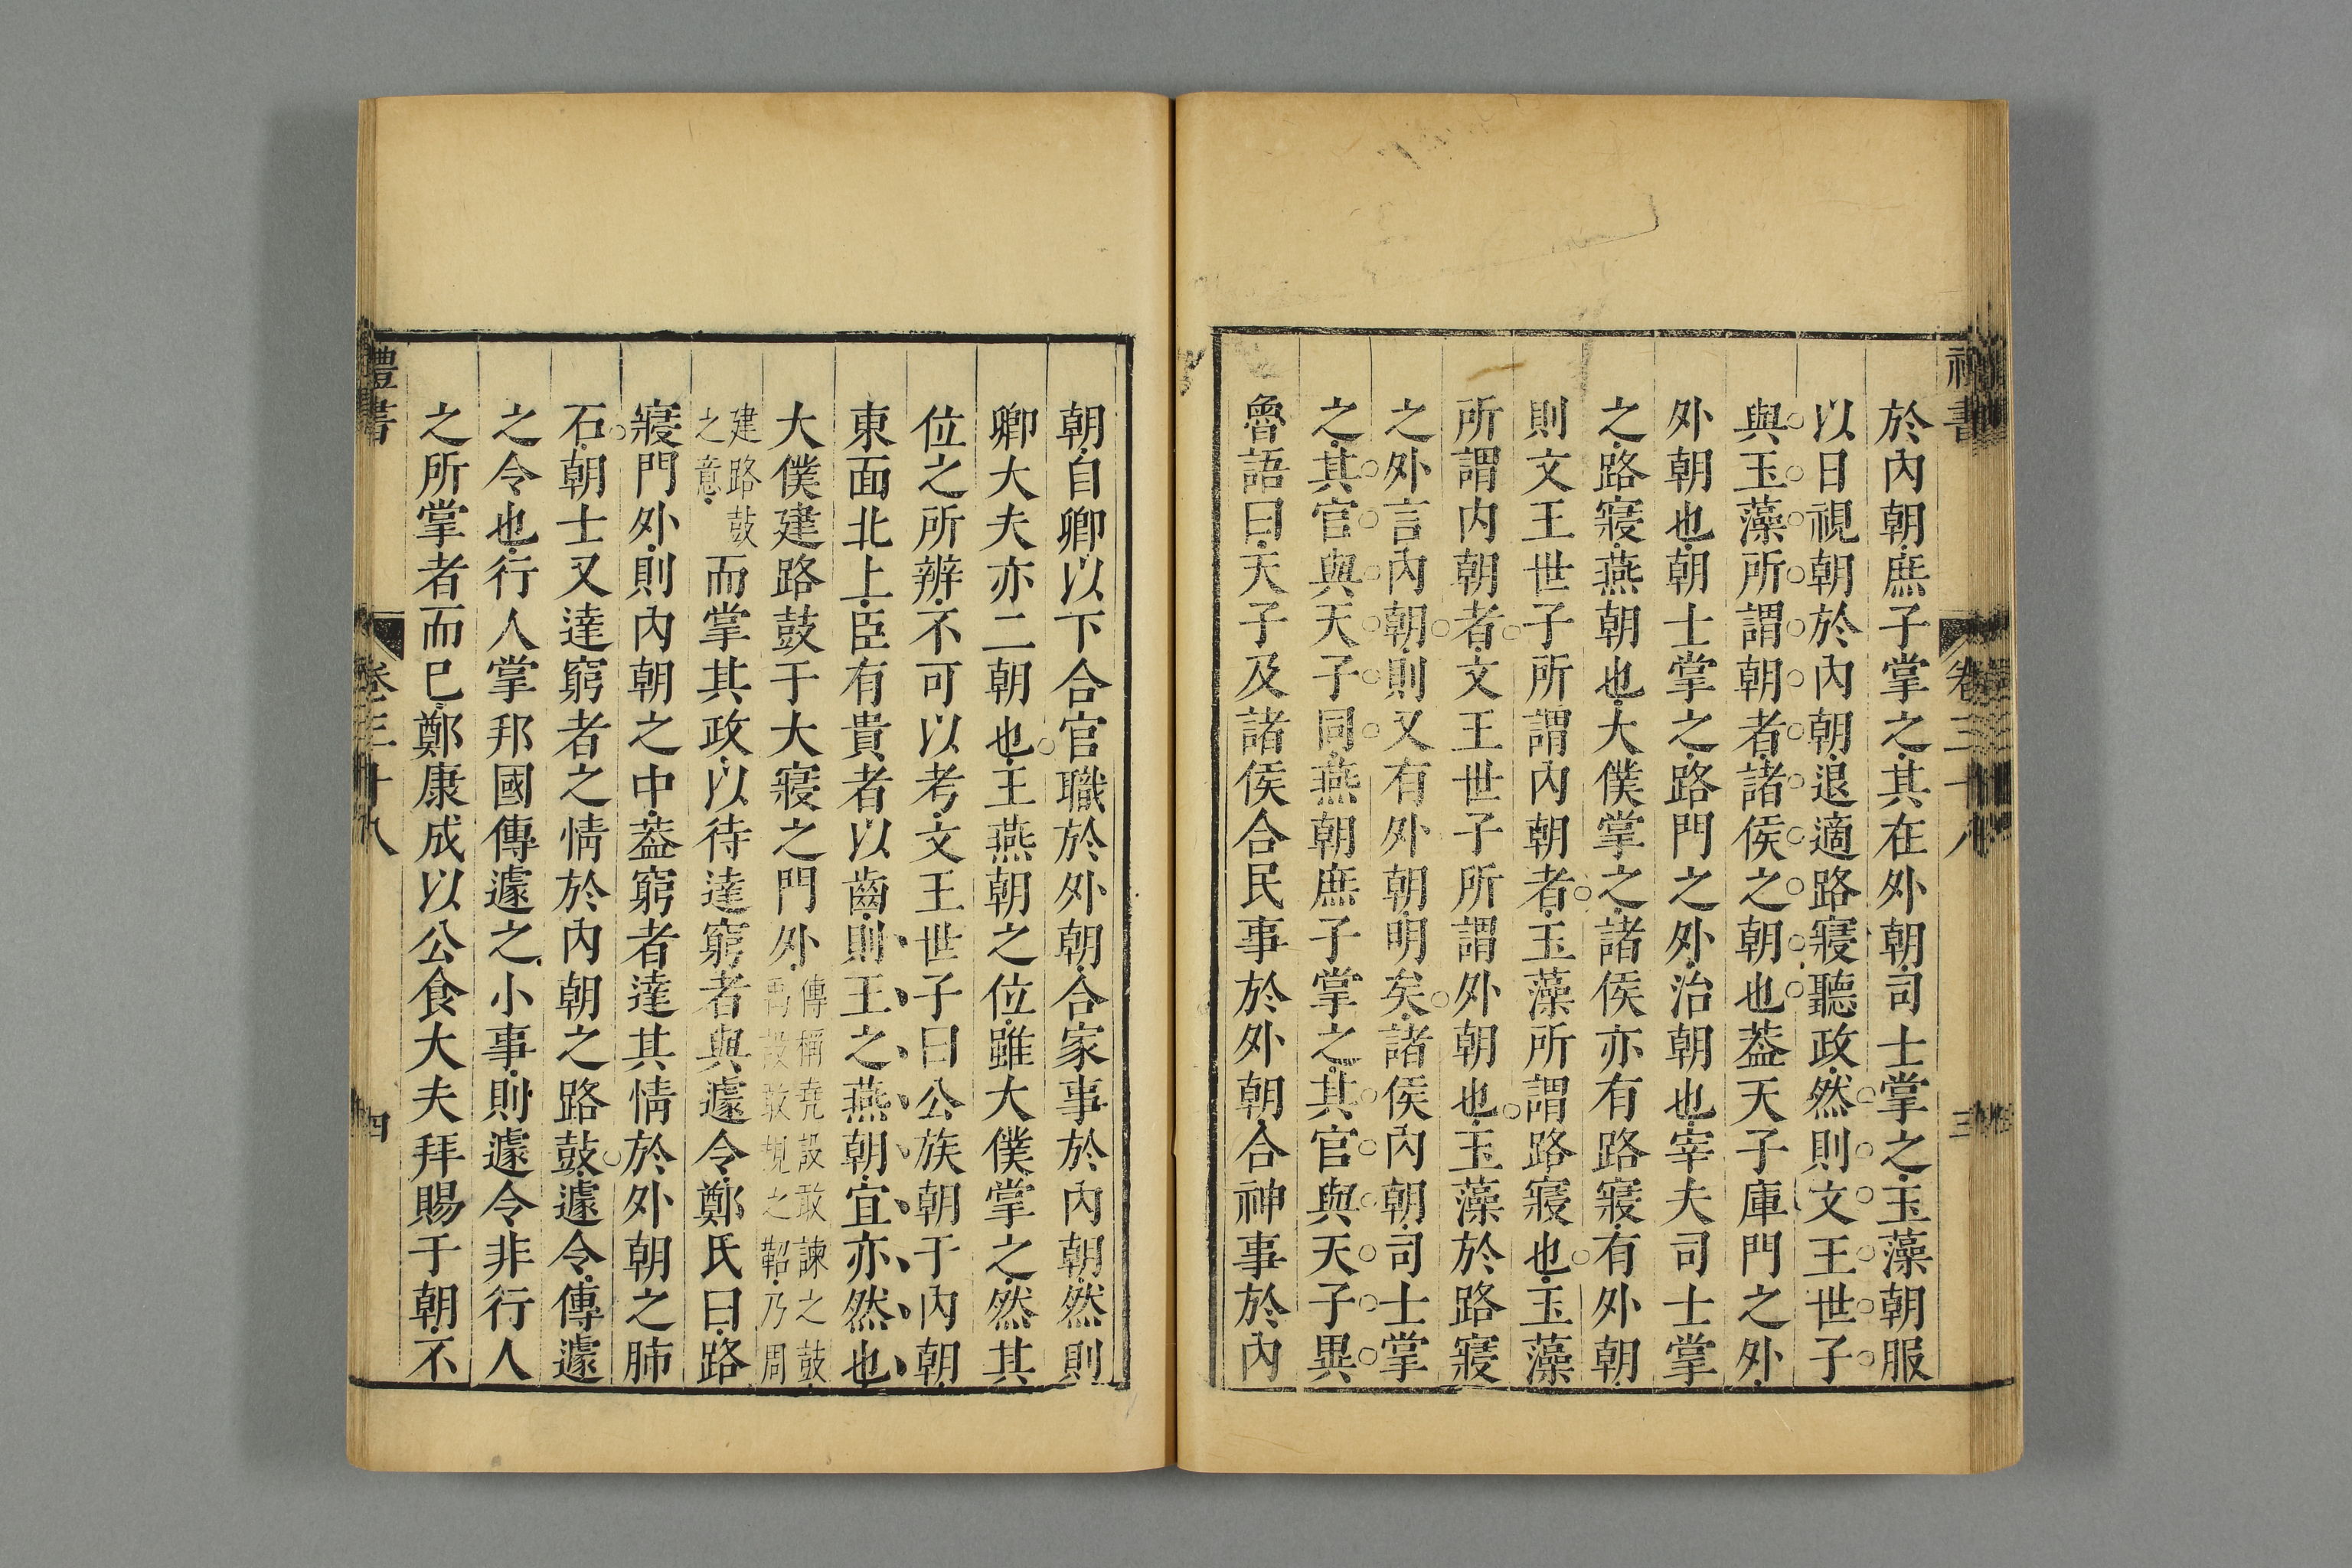 於內朝庶子掌之其在外朝司士掌之玉藻朝服
以日視朝於內朝退適路寢聽政然則文王世子
與玉藻所謂朝者諸侯之朝也葢天子庫門之外
外朝也朝士掌之路門之外治朝也宰夫司士掌
之路寢燕朝也大僕掌之諸侯亦有路寢有外朝
則文王世子所謂內朝者玉藻所謂路寢也玉藻
所謂內朝者文王世子所謂外朝也玉藻於路寢
之外言內朝則又有外朝明矣諸侯內朝司士掌
之其官與天子同燕朝庶子掌之其官與天子異
魯語曰天子及諸侯合民事於外朝合神事於內
朝自卿以下合官職於外朝合家事於內朝然則
卿大夫亦二朝也王燕朝之位雖大僕掌之然其
位之所辨不可以考文王世子曰公族朝于內朝
東面北上臣有貴者以齒則王之燕朝宜亦然也
大僕建路鼓于大寢之門外傳稱堯設敢諫之鼓禹設敢規之鞀乃周
建路鼓之意而掌其政以待達窮者與遽令鄭氏曰路
寢門外則內朝之中葢窮者達其情於外朝之肺
石朝士又達窮者之情於內朝之路鼓遽令傳遽
之令也行人掌邦國傳遽之小事則遽令非行人
之所掌者而已鄭康成以公食大夫拜賜于朝不
禮書
卷三十八
四